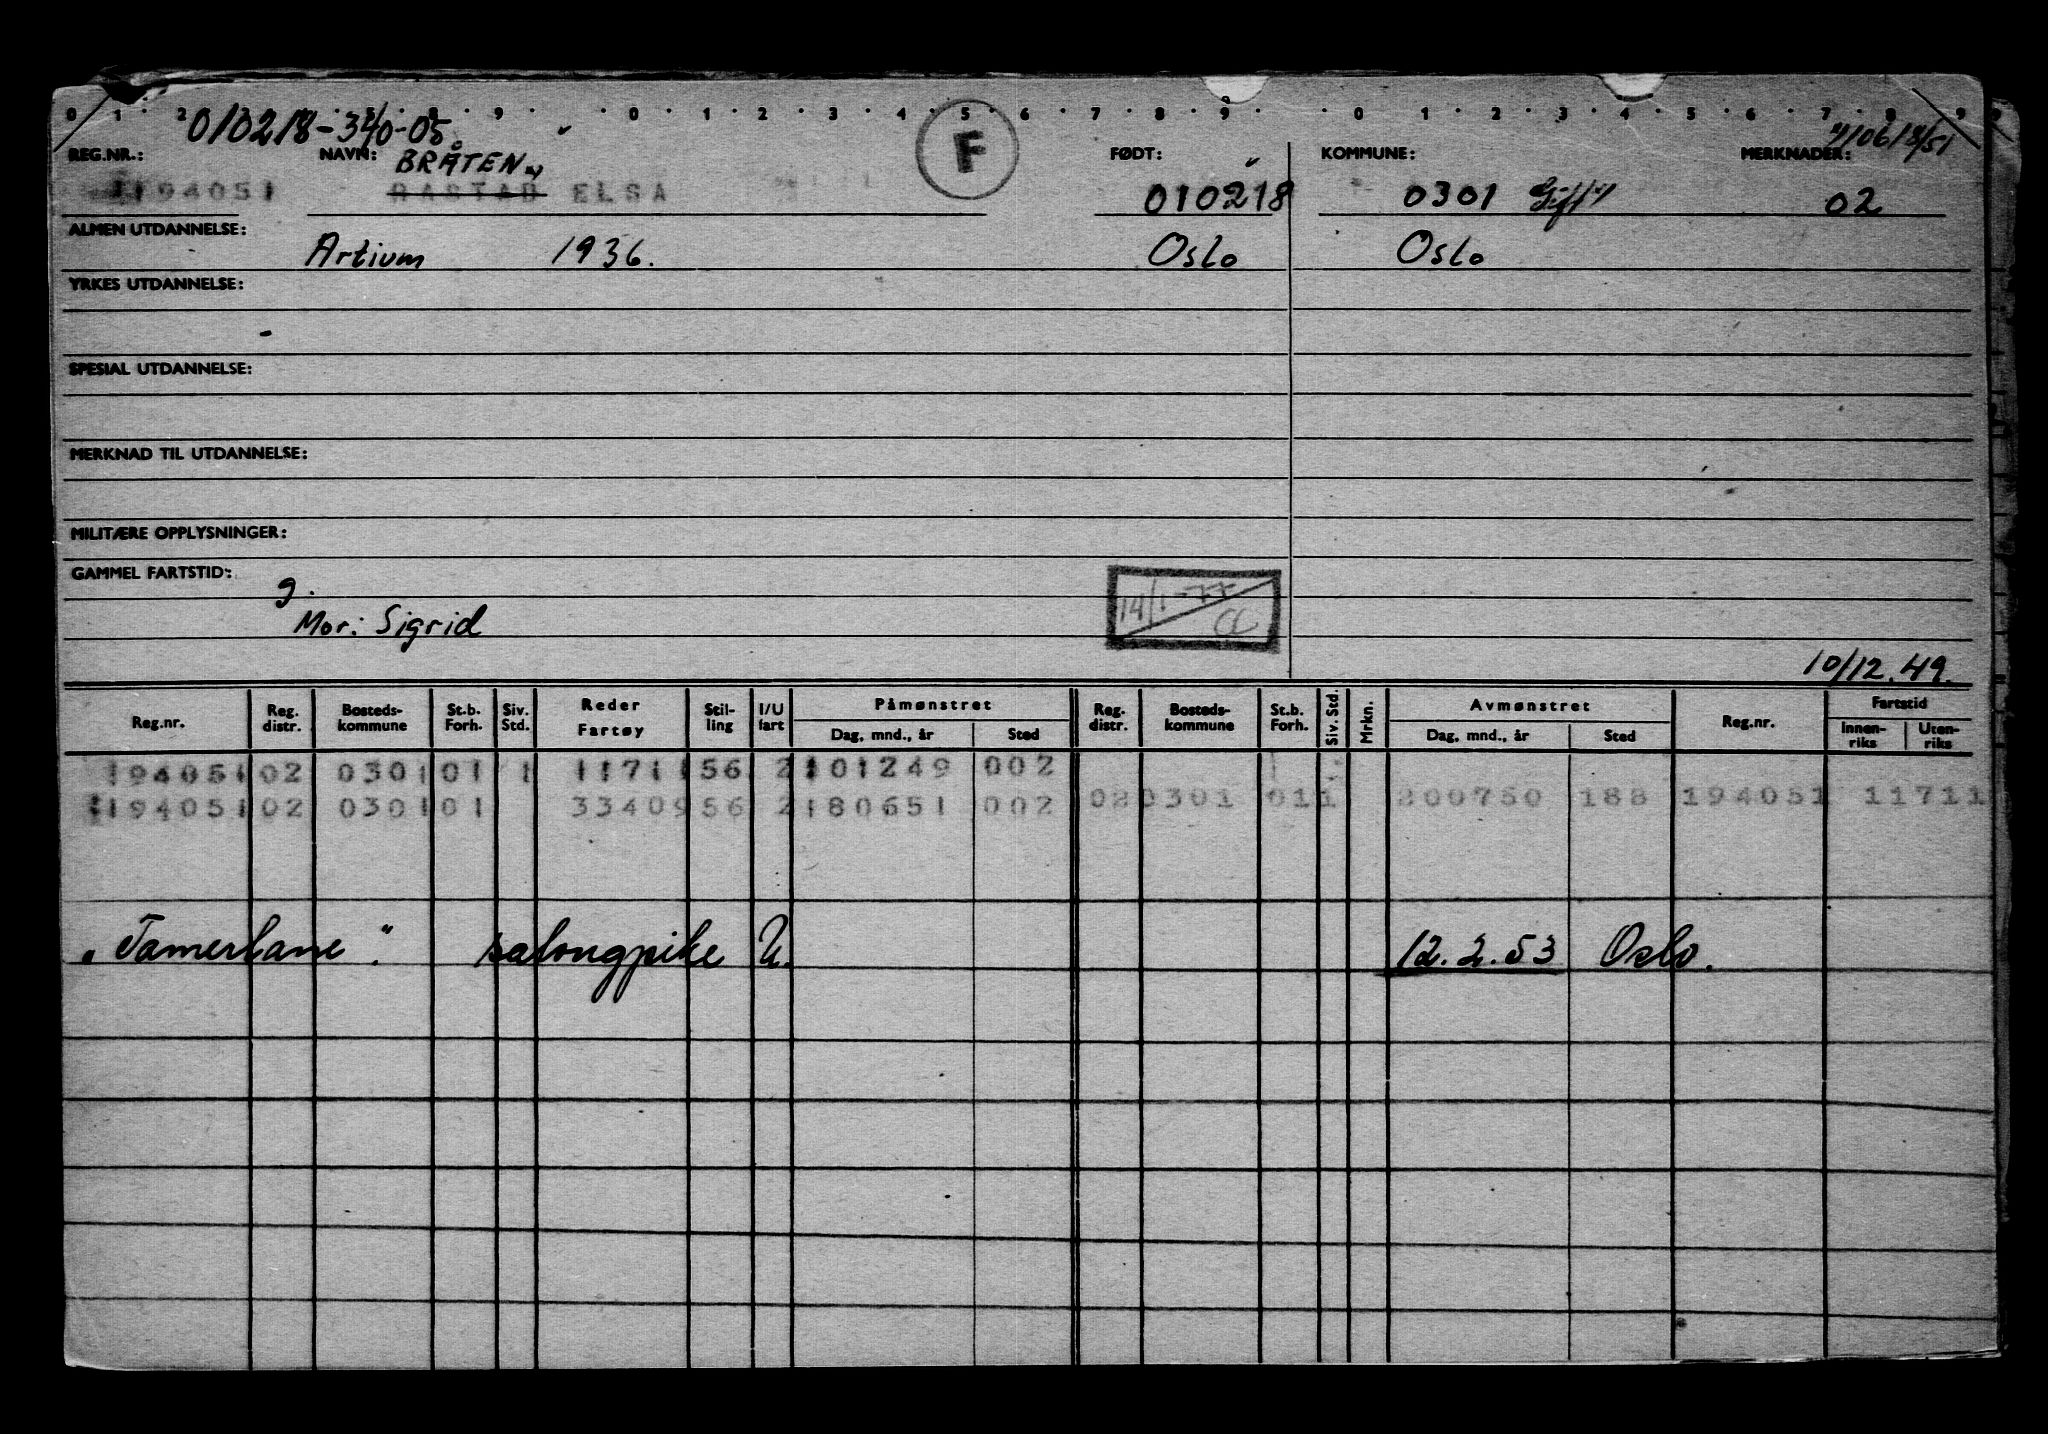 0 1 2 9 0 1 2 3 4 5 6 7 8 9 0 1 2 3 4 5 6 7 8 9
010218-340-05
F
REG.NR.: NAVN: FØDT: KOMMUNE: MERKNADER:
BRÅTEN
194051 RASTAD ELSA 010218 0301 Gift 02
ALMEN UTDANNELSE:
Artium 1936. Oslo Oslo
YRKES UTDANNELSE:
-
SPESIAL UTDANNELSE:
MERKNAD TIL UTDANNELSE:
MILITÆRE OPPLYSNINGER:
GAMMEL FARTSTID:
g.
14/1-77
Mor: Sigrid
10/12.49.
Reg.nr. Reg. distr. Bosteds-kommune St.b. Forh. Siv. Std. Reder Fartøy Stil-ling I/U fart Påmønstret Reg. distr. Bosteds-kommune St.b. Forh. Siv. Std. Mrkn. Avmønstret Reg.nr. Fartstid
Dag, mnd., år Sted Dag, mnd., år Sted Innen-riks Uten-riks
194051 02 0301 01 1 11711 56 2 101249 002
194051 02 0301 01 33409 56 2 180651 002 02 0301 01 1 200750 188 194051 11711
"Tamerlane". salongpike U. 12.2.53 Oslo.